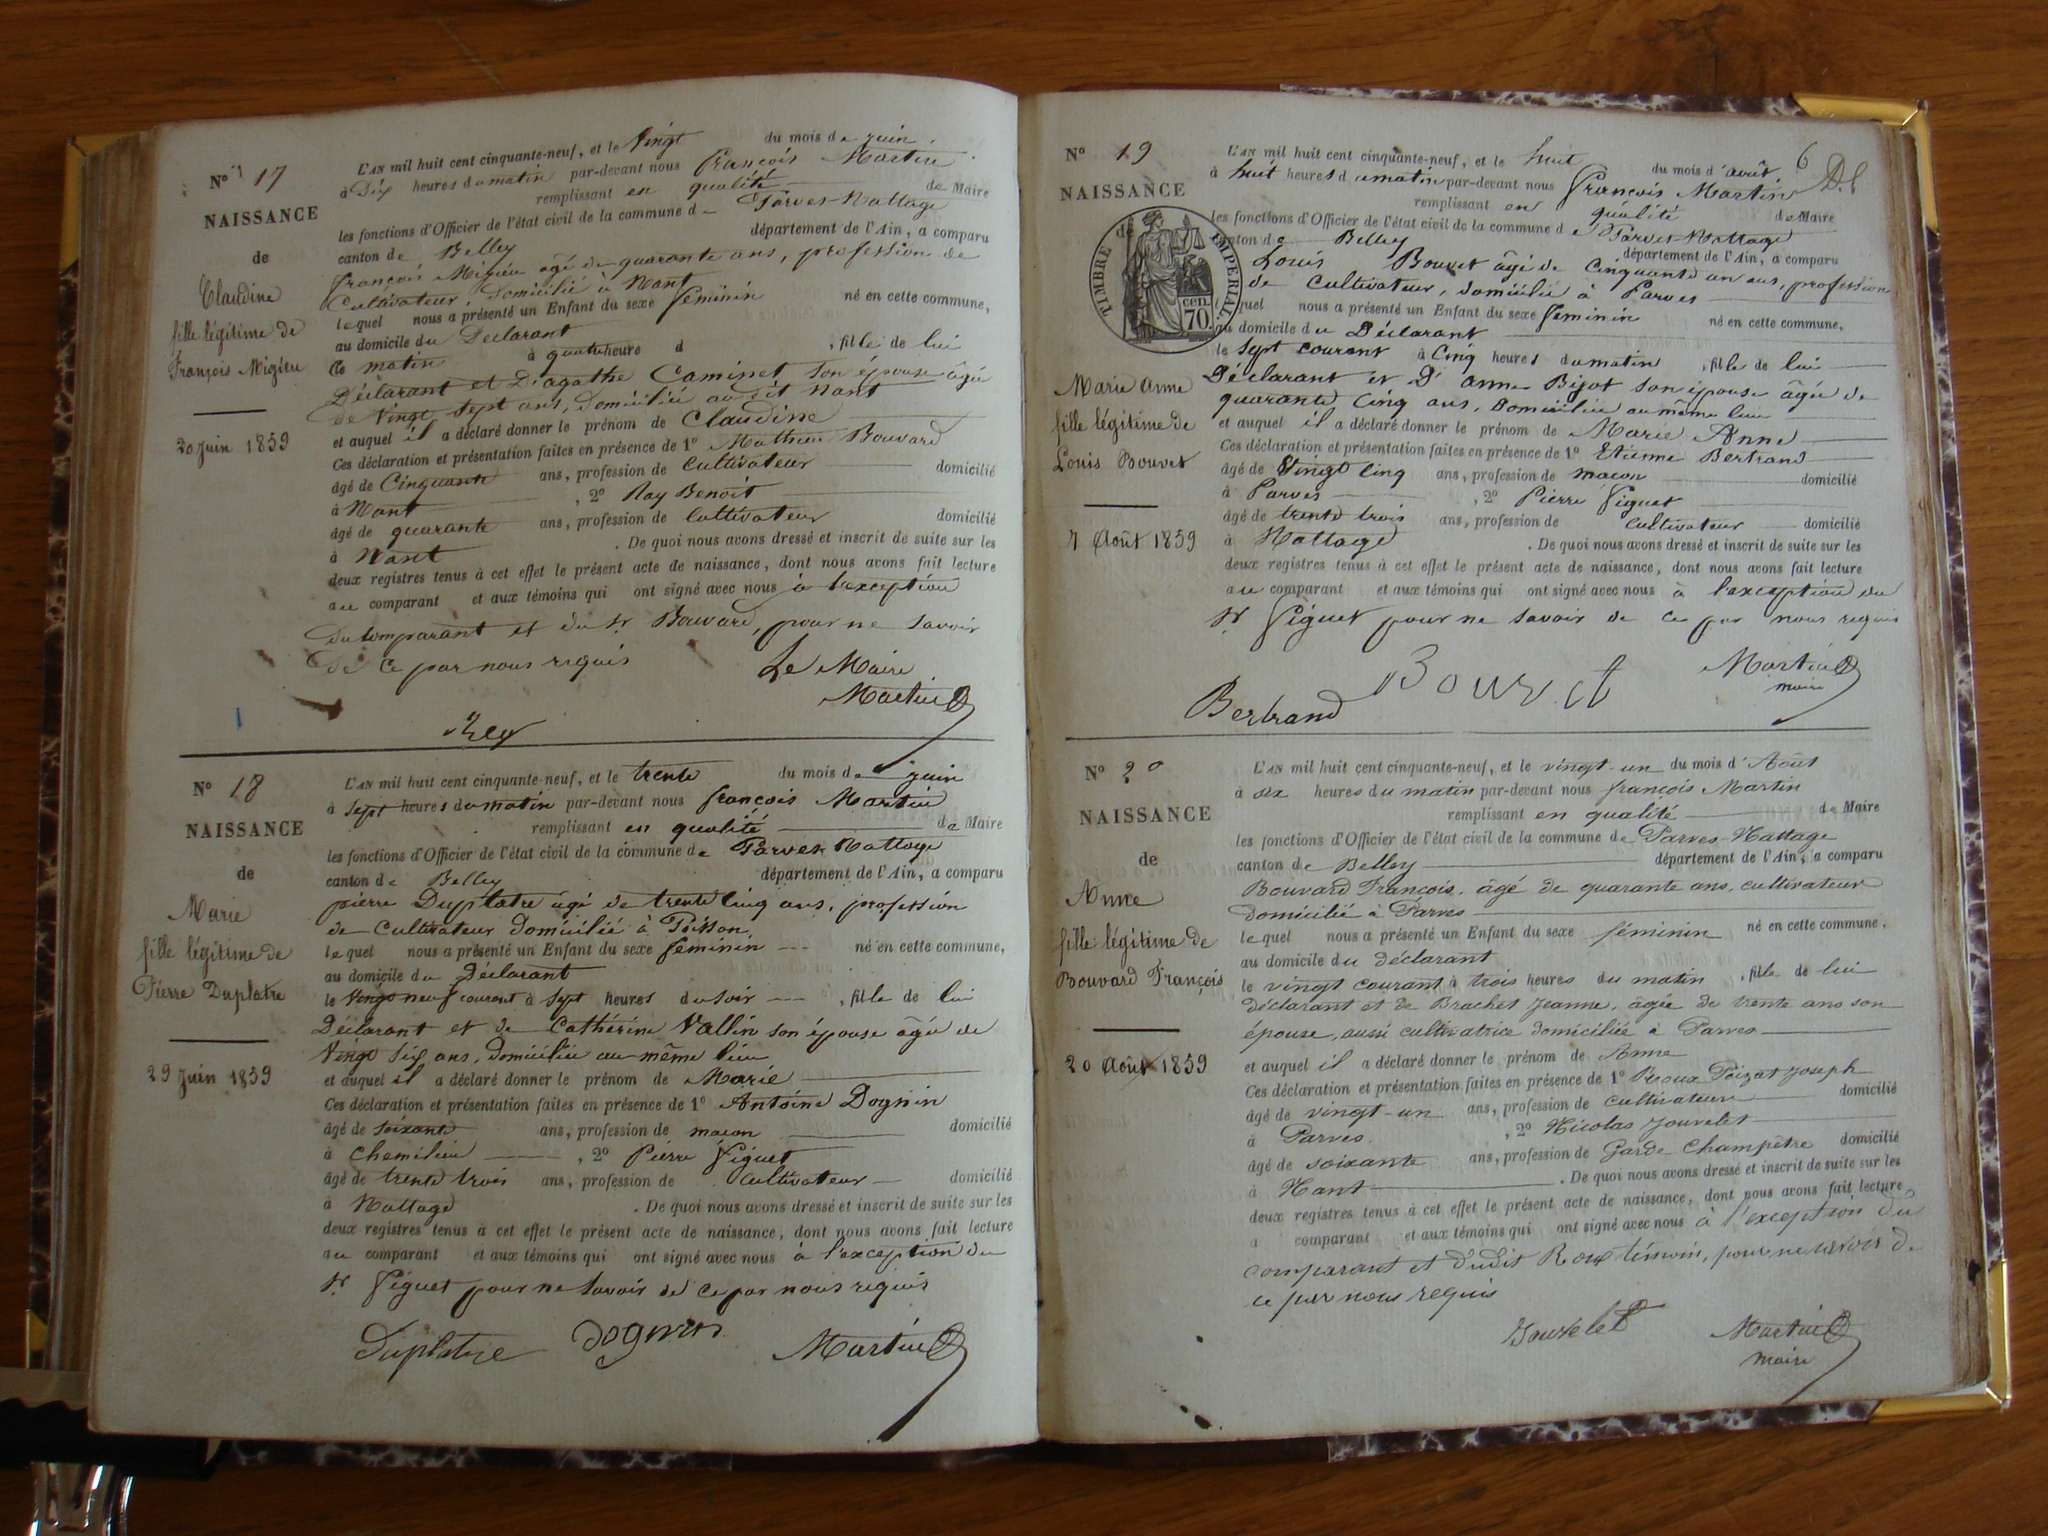 N° 17
NAISSANCE
de
Claudine
fille légitime de
François Migieu
20 Juin 1859
L'AN mil huit cent cinquante-neuf, et le Vingt du mois de juin
à Dix heures du matin par-devant nous françois Martin
remplissant en qualité de Maire
les fonctions d'Officier de l'état civil de la commune d Parves-Nattage
canton de Belley département de l'Ain, a comparu
françois Migieu âgé de quarante ans, profession de
Cultivateur, domicilié à Nant
lequel nous a présenté un Enfant du sexe féminin né en cette commune,
au domicile du Déclarant
Ce matin à quatre heure d , fille de lui
Déclarant et D'agathe Caminet son épouse âgée
de Vingt sept ans, domiciliée au dit Nant
et auquel il a déclaré donner le prénom de Claudine
Ces déclaration et présentation faites en présence de 1° Mathieu Bouvard
âgé de Cinquante ans, profession de cultivateur domicilié
à Nant , 2° Ray Benoit
âgé de quarante ans, profession de Cultivateur domicilié
à Nant . De quoi nous avons dressé et inscrit de suite sur les
deux registres tenus à cet effet le présent acte de naissance, dont nous avons fait lecture
au comparant et aux témoins qui ont signé avec nous à l'exception
du Comparant et du Sr Bouvard, pour ne savoir
de ce par nous requis
Le Maire
Martin
Rey
N° 18
NAISSANCE
de
Marie
fille légitime de
Pierre Duplatre
29 Juin 1859
L'AN mil huit cent cinquante-neuf, et le trente du mois de juin
à sept heures du matin par-devant nous françois Martin
remplissant en qualité de Maire
les fonctions d'Officier de l'état civil de la commune de Parves-Nattage
canton de Belley département de l'Ain, a comparu
pierre Duplatre âgé de trente cinq ans, profession
de Cultivateur domicilié à Poisson
lequel nous a présenté un Enfant du sexe féminin né en cette commune,
au domicile du Déclarant
le Vingt neuf courant à sept heures du soir , fille de lui
Déclarant et de Cathérine Vallin son épouse âgée de
Vingt six ans, domiciliée au même lieu
et auquel il a déclaré donner le prénom de Marie
Ces déclaration et présentation faites en présence de 1° Antoine Dognin
âgé de soixante ans, profession de macon domicilié
à Chemilieu , 2° Pierre Figuet
âgé de trente trois ans, profession de cultivateur domicilié
à Nattage . De quoi nous avons dressé et inscrit de suite sur les
deux registres tenus à cet effet le présent acte de naissance, dont nous avons fait lecture
au comparant et aux témoins qui ont signé avec nous à l'exception du
Sr Figuet pour ne savoir de ce par nous requis
Duplatre dognin Martin
6
N° 19
NAISSANCE
de
TIMBRE IMPERIAL
70 cen.
Marie Anne
fille légitime de
Louis Bouvet
7 Août 1859
L'AN mil huit cent cinquante-neuf, et le huit du mois d'août
à huit heures du matin par-devant nous françois Martin
remplissant en qualité de Maire
les fonctions d'Officier de l'état civil de la commune de Parves-Nattage
canton de Belley département de l'Ain, a comparu
Louis Bouvet âgé de Cinquante un ans, profession
de Cultivateur, domicilié à Parves
lequel nous a présenté un Enfant du sexe féminin né en cette commune,
au domicile du Déclarant
le sept courant à Cinq heures du matin , fille de lui
Déclarant et D'anne Bijot son épouse âgée de
quarante Cinq ans, Domiciliée au même lieu
et auquel il a déclaré donner le prénom de Marie Anne
Ces déclaration et présentation faites en présence de 1° Etienne Bertrand
âgé de Vingt Cinq ans, profession de macon domicilié
à Parves , 2° Pierre Figuet
âgé de trente trois ans, profession de cultivateur domicilié
à Nattage . De quoi nous avons dressé et inscrit de suite sur les
deux registres tenus à cet effet le présent acte de naissance, dont nous avons fait lecture
au comparant et aux témoins qui ont signé avec nous à l'exception du
Sr Figuet pour ne savoir de ce par nous requis
Bertrand Bouvet Martin
maire
N° 20
NAISSANCE
de
Anne
fille légitime de
Bouvard François
20 Août 1859
L'AN mil huit cent cinquante-neuf, et le vingt-un du mois d'Août
à six heures du matin par-devant nous françois Martin
remplissant en qualité de Maire
les fonctions d'Officier de l'état civil de la commune de Parves-Nattage
canton de Belley département de l'Ain, a comparu
Bouvard François, âgé de quarante ans, cultivateur
domicilié à Parves
lequel nous a présenté un Enfant du sexe féminin né en cette commune,
au domicile du déclarant
le vingt courant à trois heures du matin , fille de lui
déclarant et de Brachet Jeanne, âgée de trente ans son
épouse, aussi cultivatrice domiciliée à Parves
et auquel il a déclaré donner le prénom de Anne
Ces déclaration et présentation faites en présence de 1° Roux Poizat Joseph
âgé de vingt-un ans, profession de cultivateur domicilié
à Parves , 2° Nicolas Jouvelet
âgé de soixante ans, profession de Garde Champêtre domicilié
à Nant . De quoi nous avons dressé et inscrit de suite sur les
deux registres tenus à cet effet le présent acte de naissance, dont nous avons fait lecture
a comparant et aux témoins qui ont signé avec nous à l'exception du
comparant et dudit Roux témoin, pour ne savoir de
ce par nous requis
Jouvelet Martin
maire